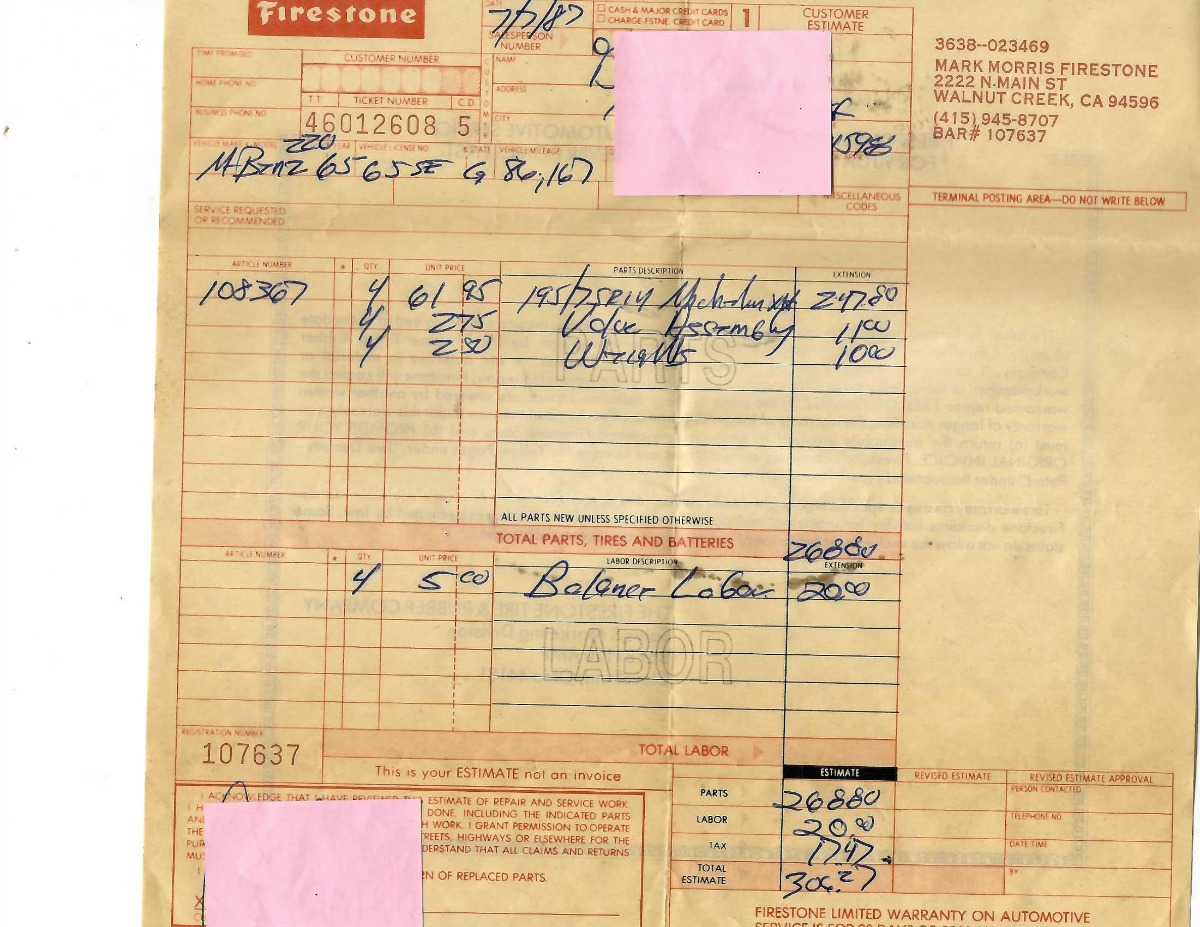 Firestone
DATE 7/7/87
CASH & MAJOR CREDIT CARDS
CHARGE-FSTNE. CREDIT CARD
1
CUSTOMER ESTIMATE
SALESPERSON NUMBER
3638--023469
MARK MORRIS FIRESTONE
2222 N. MAIN ST
WALNUT CREEK, CA 94596
(415) 945-8707
BAR# 107637
TIME PROMISED
CUSTOMER NUMBER
NAME
HOME PHONE NO.
ADDRESS
T.T. TICKET NUMBER C.D.
BUSINESS PHONE NO.
46012608 5
CUSTOMER
CITY
VEHICLE MAKE & MODEL YEAR VEHICLE LICENSE NO. & STATE VEHICLE MILEAGE
220
M-Benz 65 65 SE G 86,167
MISCELLANEOUS CODES
TERMINAL POSTING AREA—DO NOT WRITE BELOW
SERVICE REQUESTED OR RECOMMENDED
ARTICLE NUMBER * QTY UNIT PRICE PARTS DESCRIPTION EXTENSION
108367 4 61 95 195/75R14 Michelin 247.80
4 2 75 Valve Assembly 11 00
4 2 50 Weights 10 00
PARTS
ALL PARTS NEW UNLESS SPECIFIED OTHERWISE
TOTAL PARTS, TIRES AND BATTERIES 268 80
ARTICLE NUMBER * QTY UNIT PRICE LABOR DESCRIPTION EXTENSION
4 5 00 Balance Labor 20.00
LABOR
REGISTRATION NUMBER
107637
TOTAL LABOR
This is your ESTIMATE not an invoice
ESTIMATE REVISED ESTIMATE REVISED ESTIMATE APPROVAL
PARTS 268 80
LABOR 20.00
TAX 17.47
TOTAL ESTIMATE 306.27
PERSON CONTACTED
TELEPHONE NO.
DATE TIME
BY
I ACKNOWLEDGE THAT I HAVE REVIEWED ESTIMATE OF REPAIR AND SERVICE WORK.
DONE, INCLUDING THE INDICATED PARTS
WORK. I GRANT PERMISSION TO OPERATE
HIGHWAYS OR ELSEWHERE FOR THE
THAT ALL CLAIMS AND RETURNS
OF REPLACED PARTS.
X
FIRESTONE LIMITED WARRANTY ON AUTOMOTIVE